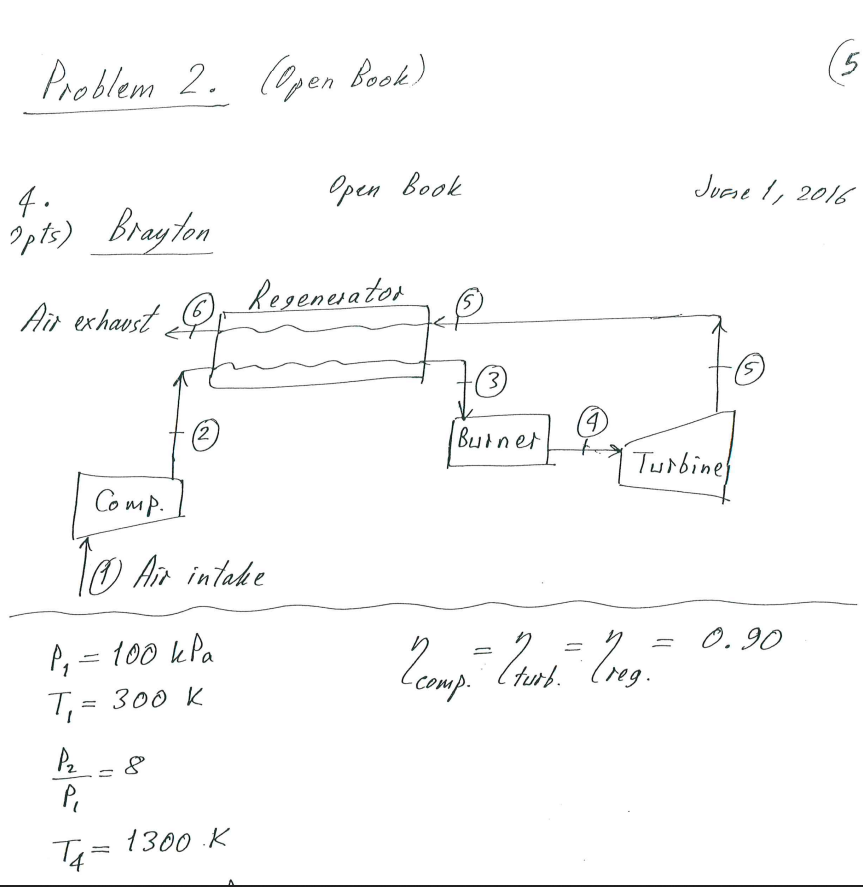 Problem 2. (Open Book) (5
4. Open Book June 1, 2016
pts) Brayton
Air exhaust 6 Regenerator 5
3
5
2
Burner 4 Turbine
Comp.
1 Air intake
P₁ = 100 kPa
η comp. = η turb. = η reg. = 0.90
T₁ = 300 K
P₂/P₁ = 8
T₄ = 1300 K